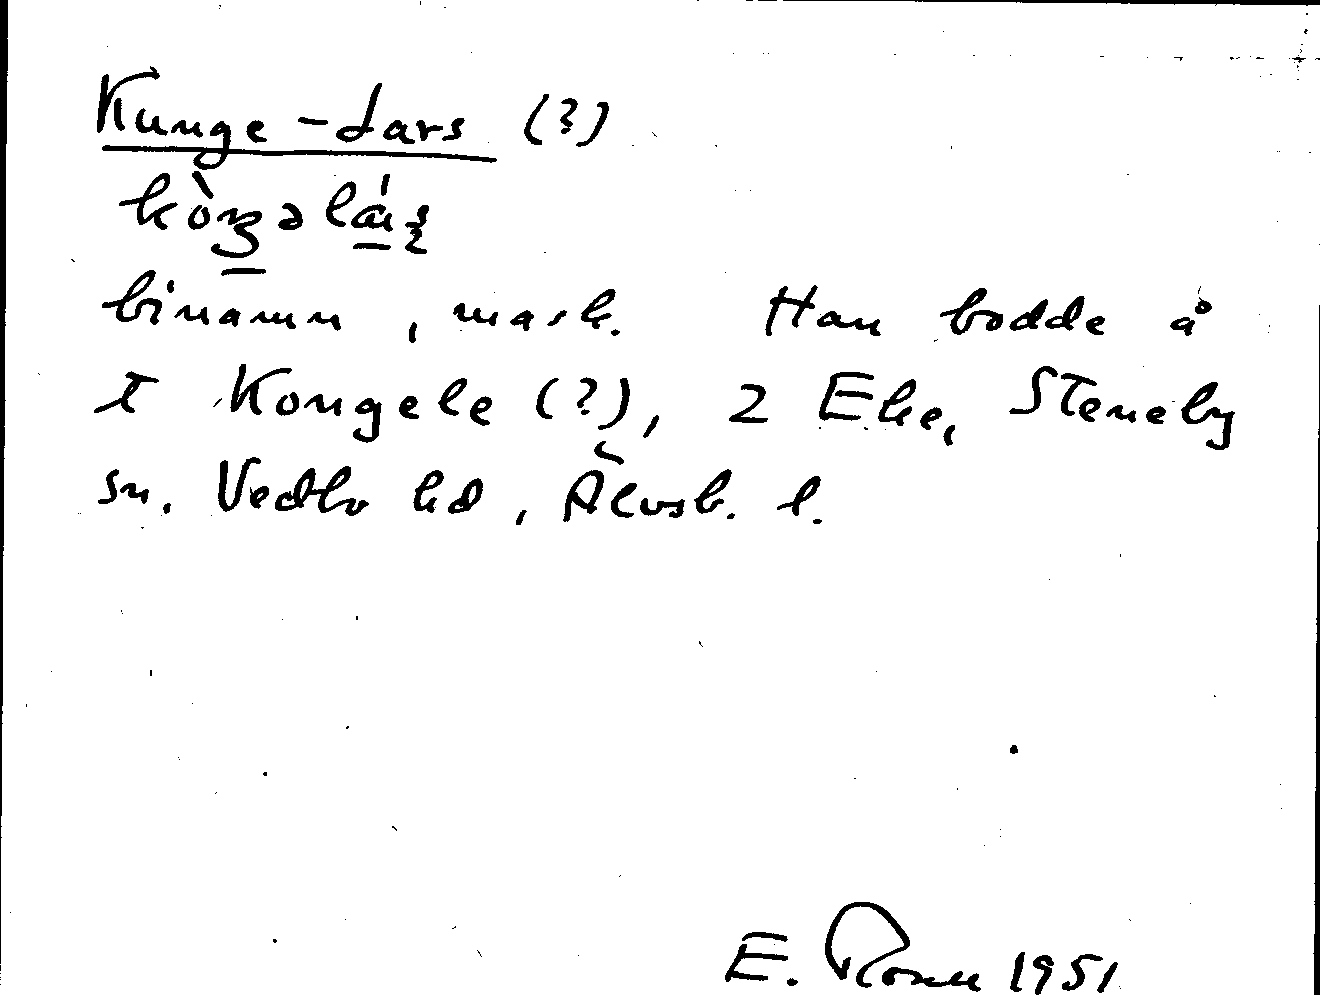 Kunge-Lars (?)
binamn, mask. Han bodde å
t Kongele (?), 2 Eke, Steneby
sn. Vedbo hd, Älvsb. l.
E. Rosell 1951